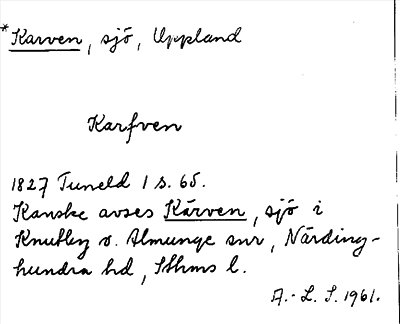 *Karven, sjö, Uppland
Karfven
1827 Tuneld 1 s. 65.
Kanske avses Kärven, sjö i
Knutby o. Almunge snr, Närding-
hundra hd, Sthms l.
A.-L. S. 1961.